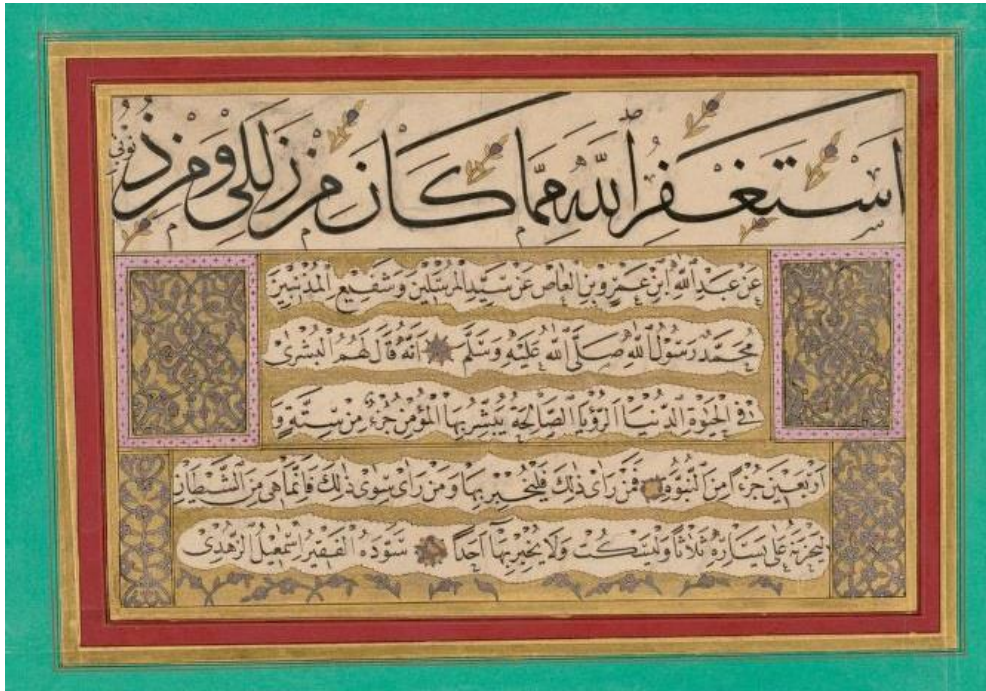 استغفر الله مما كان من زللي ومن ذنوبي
عَنْ عَبْدِ اللّٰهِ ابْنِ عَمْرٍو بْنِ الْعَاصِ عَنْ سَيِّدِ الْمُرْسَلِينَ وَشَفِيعِ الْمُذْنِبِينَ
مُحَمَّدٌ رَسُولُ اللّٰهِ صَلَّى اللّٰهُ عَلَيْهِ وَسَلَّمَ اَنَّهُ قَالَ لَهُمُ الْبُشْرٰى
فِي الْحَيٰوةِ الدُّنْيَا الرُّؤْيَا الصَّالِحَةُ يُبَشَّرُ بِهَا الْمُؤْمِنُ جُزْءٌ مِنْ سِتَّةٍ وَ
اَرْبَعِينَ جُزْءًا مِنَ النُّبُوَّةِ فَمَنْ رَاٰى ذٰلِكَ فَلْيُخْبِرْ بِهَا وَمَنْ رَاٰى سِوٰى ذٰلِكَ فَاِنَّمَا هِيَ مِنَ الشَّيْطَانِ
لِيُحْزِنَهُ عَلٰى يَسَارِهِ ثَلَاثًا وَلْيَسْكُتْ وَلَا يُخْبِرْ بِهَا اَحَدًا سَوَّدَهُ الْفَقِيرُ اِسْمٰعِيلُ الزُّهْدِى